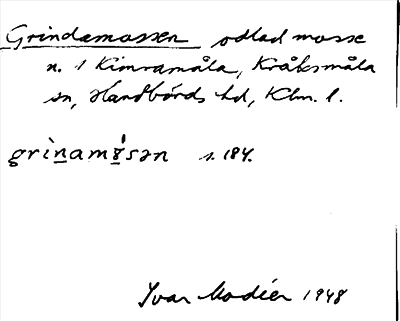 Grindamossen odlad mosse
n. i Kimramåla, Kråksmåla
sn, Handbörds hd, Klm. l.
s. 184.
Ivar Modéer 1948